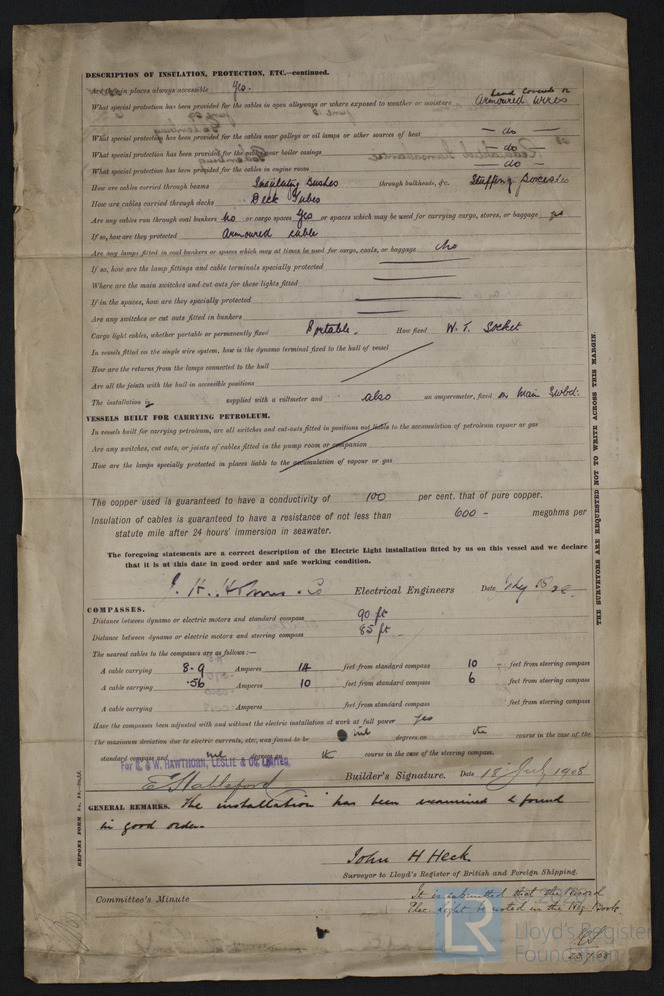 DESCRIPTION OF INSULATION, PROTECTION, ETC.—continued.
Are they in places always accessible Yes.
Lead Covered or
What special protection has been provided for the cables in open alleyways or where exposed to weather or moisture Armoured Wires
What special protection has been provided for the cables near galleys or oil lamps or other sources of heat — do —
What special protection has been provided for the cables near boiler casings — do —
What special protection has been provided for the cables in engine room — do —
How are cables carried through beams Insulating Bushes through bulkheads, &c. Stuffing
How are cables carried through decks Deck Tubes
Are any cables run through coal bunkers no or cargo spaces Yes or spaces which may be used for carrying cargo, stores, or baggage yes
If so, how are they protected Armoured cable
Are any lamps fitted in coal bunkers or spaces which may at times be used for cargo, coals, or baggage No
If so, how are the lamp fittings and cable terminals specially protected
Where are the main switches and cut outs for these lights fitted
If in the spaces, how are they specially protected
Are any switches or cut outs fitted in bunkers
Cargo light cables, whether portable or permanently fixed Portable. How fixed W. T. Socket
In vessels fitted on the single wire system, how is the dynamo terminal fixed to the hull of vessel
How are the returns from the lamps connected to the hull
Are all the joints with the hull in accessible positions
The installation is supplied with a voltmeter and also an amperemeter, fixed on Main Swbd:
VESSELS BUILT FOR CARRYING PETROLEUM.
In vessels built for carrying petroleum, are all switches and cut-outs fitted in positions not liable to the accumulation of petroleum vapour or gas
Are any switches, cut outs, or joints of cables fitted in the pump room or companion
How are the lamps specially protected in places liable to the accumulation of vapour or gas
The copper used is guaranteed to have a conductivity of 100 per cent. that of pure copper.
Insulation of cables is guaranteed to have a resistance of not less than 600 – megohms per
statute mile after 24 hours' immersion in seawater.
The foregoing statements are a correct description of the Electric Light installation fitted by us on this vessel and we declare
that it is at this date in good order and safe working condition.
Electrical Engineers Date
COMPASSES.
Distance between dynamo or electric motors and standard compass 90 ft
Distance between dynamo or electric motors and steering compass 85 ft
The nearest cables to the compasses are as follows:—
A cable carrying 8.9 Amperes 14 feet from standard compass 10 feet from steering compass
A cable carrying .56 Amperes 10 feet from standard compass 6 feet from steering compass
A cable carrying Amperes feet from standard compass feet from steering compass
Have the compasses been adjusted with and without the electric installation at work at full power Yes
The maximum deviation due to electric currents, etc., was found to be nil degrees on the course in the case of the
standard compass and nil degrees on the course in the case of the steering compass.
For R. & W. HAWTHORN, LESLIE & CO. LIMITED.
E Stableford Builder's Signature. Date 18 July 1908
GENERAL REMARKS. The installation has been examined & found
in good order.
John H Heck
Surveyor to Lloyd's Register of British and Foreign Shipping.
Committee's Minute
It is submitted that the Record
Elec. Light be noted in the Reg Book.
23.7.08
THE SURVEYORS ARE REQUESTED NOT TO WRITE ACROSS THIS MARGIN.
LR
Lloyd's Register
Foundation